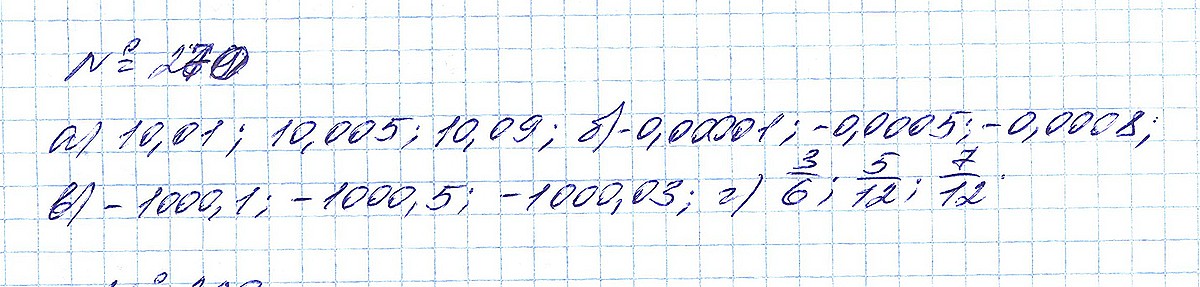 № 270
а) 10,01; 10,005; 10,09; б) -0,00001; -0,0005; -0,0008;
в) -1000,1; -1000,5; -1000,03; г) 3/6; 5/12; 7/12.